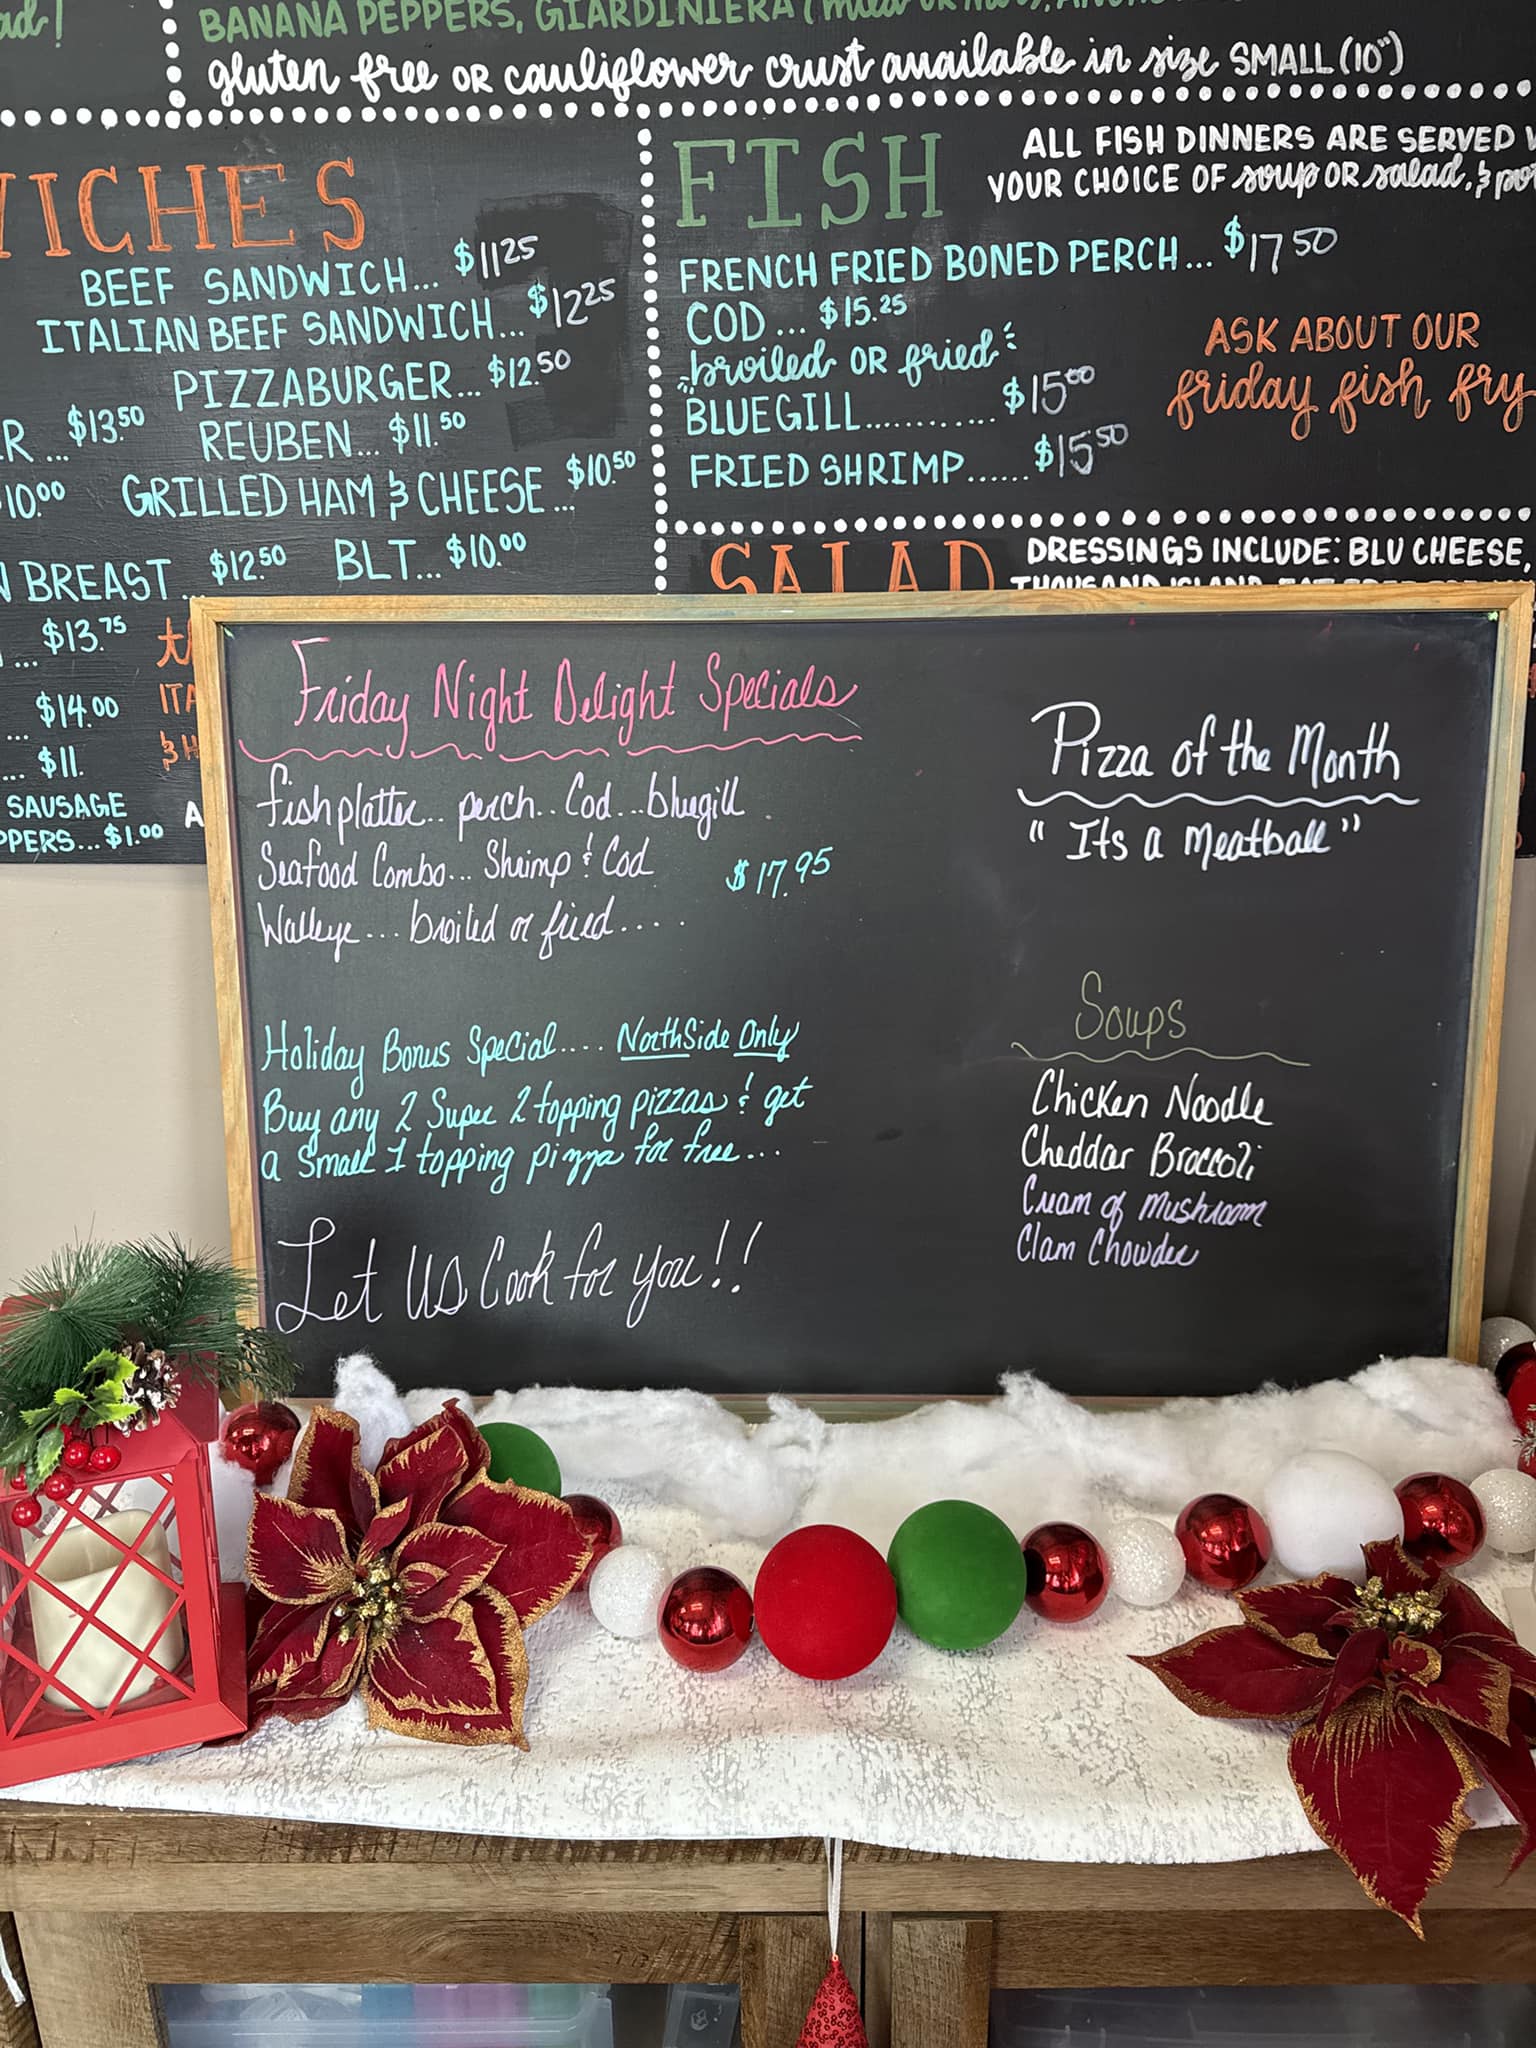 BANANA PEPPERS, GIARDINIERA (mild OR hot),
gluten free OR cauliflower crust available in size SMALL (10")
BEEF SANDWICH... $11.25
ITALIAN BEEF SANDWICH... $12.25
PIZZABURGER... $12.50
... $13.50 REUBEN... $11.50
10.00 GRILLED HAM & CHEESE... $10.50
BREAST... $12.50 BLT... $10.00
... $13.75
... $14.00
... $11.
SAUSAGE
... $1.00
FISH
ALL FISH DINNERS ARE SERVED
YOUR CHOICE OF soup OR salad, &
FRENCH FRIED BONED PERCH... $17.50
COD... $15.25
broiled OR fried
BLUEGILL........... $15.00
FRIED SHRIMP...... $15.50
ASK ABOUT OUR
friday fish fry
SALAD
DRESSINGS INCLUDE: BLU CHEESE,
Friday Night Delight Specials
fish platter.. perch.. Cod...bluegill
Seafood Combo... Shrimp & Cod $17.95
Walleye... broiled or fried....
Holiday Bonus Special.... NorthSide Only
Buy any 2 Super 2 topping pizzas & get
a small 1 topping pizza for free...
Let US Cook for you!!
Pizza of the Month
"Its a Meatball"
Soups
Chicken Noodle
Cheddar Broccoli
Cream of Mushroom
Clam Chowder